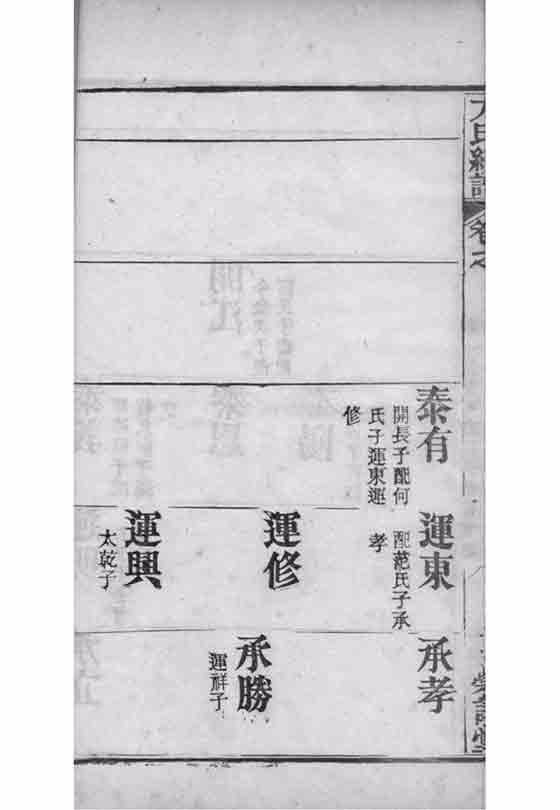 氏續譜
卷之
泰有
開長子配何
氏子運東運
修
運東
配范氏子承
孝
運修
運興
太乾子
承孝
承勝
運祥子